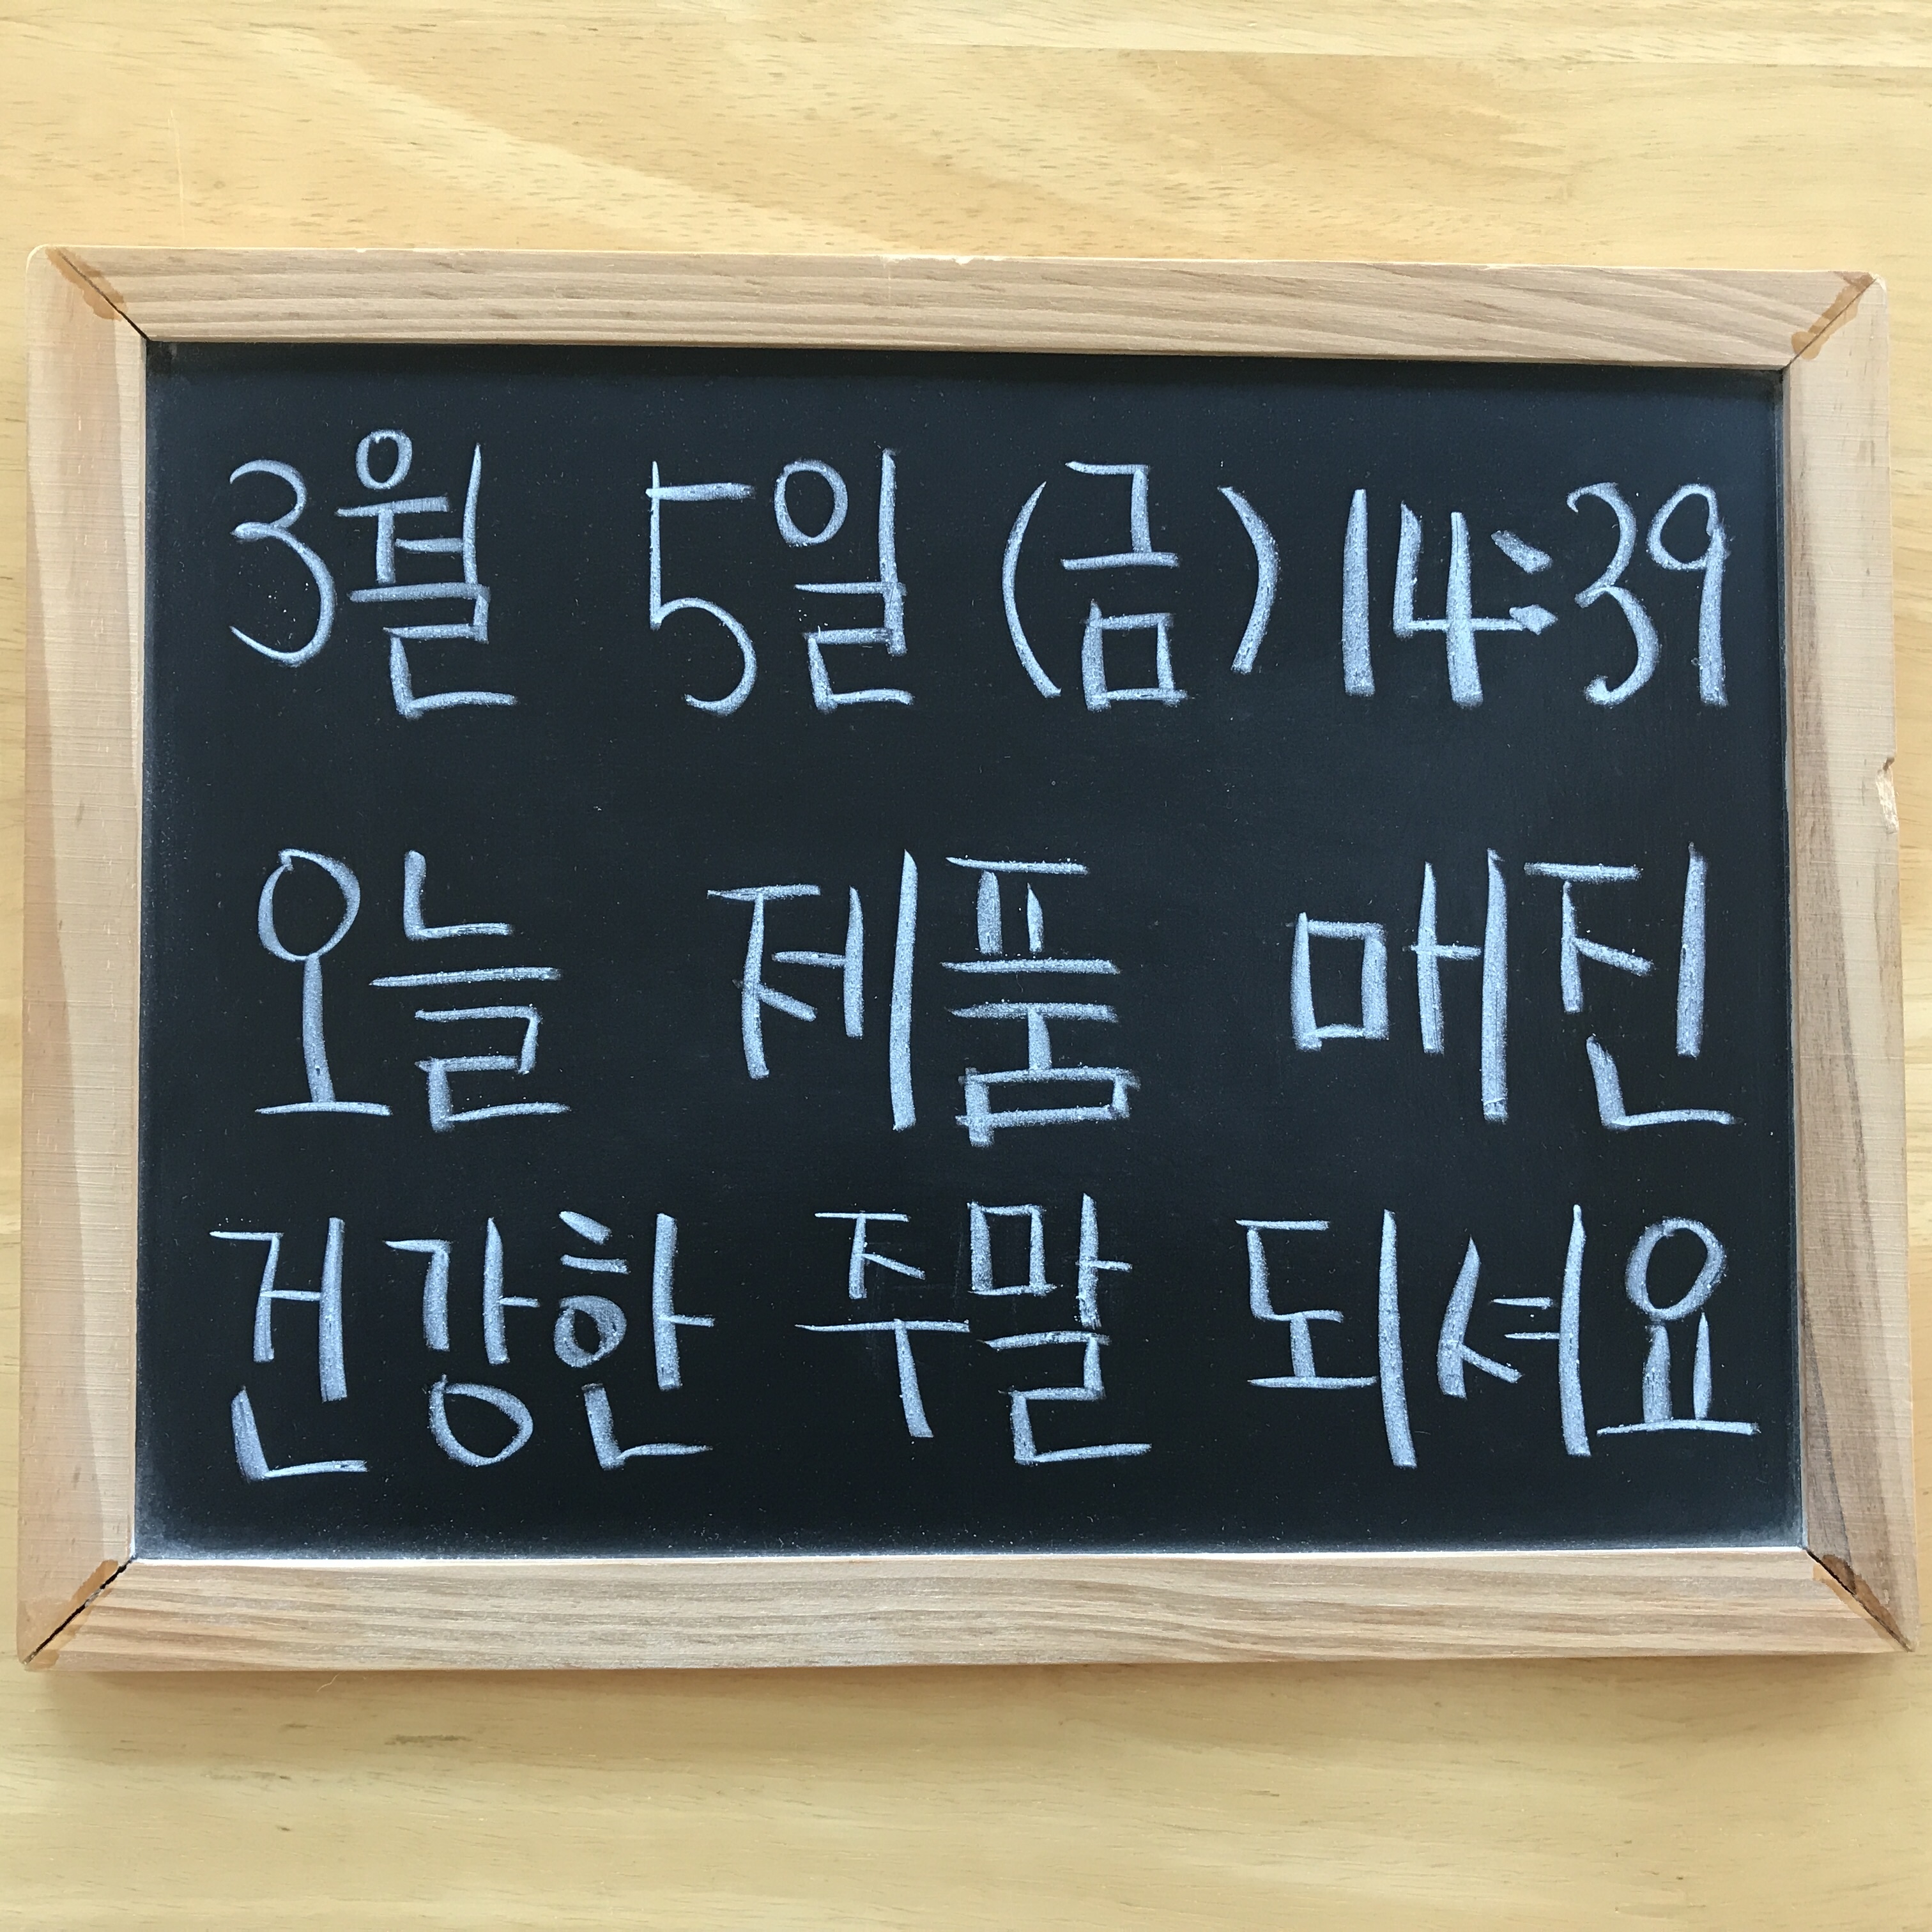 3월 5일 (금) 14:39
오늘 제품 매진
건강한 주말 되셔요